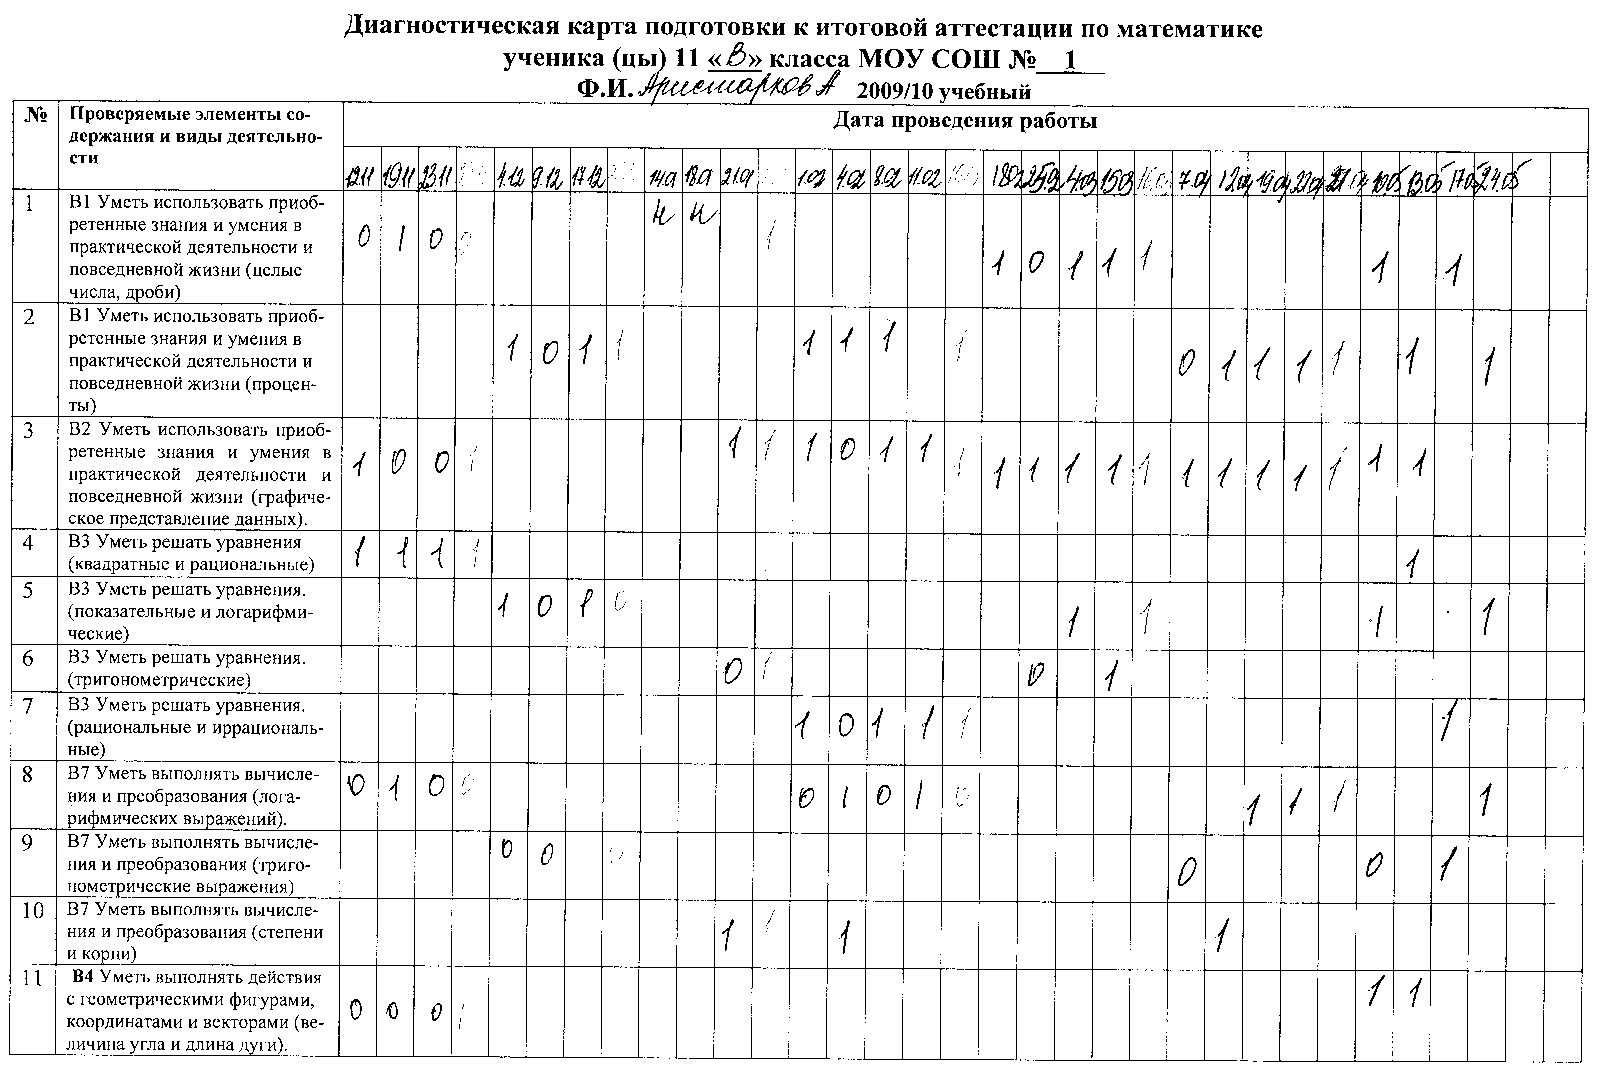 Диагностическая карта подготовки к итоговой аттестации по математике
ученика (цы) 11 «В» класса МОУ СОШ № 1
Ф.И. Аристархов А 2009/10 учебный
№ Проверяемые элементы со-
держания и виды деятельно-
сти
Дата проведения работы
12.11 19.11 23.11 4.12 9.12 17.12 14.01 18.01 21.01 1.02 4.02 8.02 11.02 18.02 25.02 4.03 15.03 7.04 12.04 19.04 22.04 10.05 13.05 17.05 24.05
1 В1 Уметь использовать приоб-
ретенные знания и умения в
практической деятельности и
повседневной жизни (целые
числа, дроби)
н н
0 1 0 0 1
1 0 1 1 1 1 1
2 В1 Уметь использовать приоб-
ретенные знания и умения в
практической деятельности и
повседневной жизни (процен-
ты)
1 0 1 1 1 1 1 1 0 1 1 1 1 1 1
3 В2 Уметь использовать приоб-
ретенные знания и умения в
практической деятельности и
повседневной жизни (графиче-
ское представление данных).
1 0 0 1 1 1 1 0 1 1 1 1 1 1 1 1 1 1 1 1 1 1 1
4 В3 Уметь решать уравнения
(квадратные и рациональные)
1 1 1 1 1
5 В3 Уметь решать уравнения.
(показательные и логарифми-
ческие)
1 0 1 0 1 1 1 1
6 В3 Уметь решать уравнения.
(тригонометрические)
0 1 0 1
7 В3 Уметь решать уравнения.
(рациональные и иррациональ-
ные)
1 0 1 1 1 1
8 В7 Уметь выполнять вычисле-
ния и преобразования (лога-
рифмических выражений).
0 1 0 0 0 1 0 1 0 1 1 1 1
9 В7 Уметь выполнять вычисле-
ния и преобразования (триго-
нометрические выражения)
0 0 0 0 0 1
10 В7 Уметь выполнять вычисле-
ния и преобразования (степени
и корни)
1 1 1 1
11 В4 Уметь выполнять действия
с геометрическими фигурами,
координатами и векторами (ве-
личина угла и длина дуги).
0 0 0 1 1 1